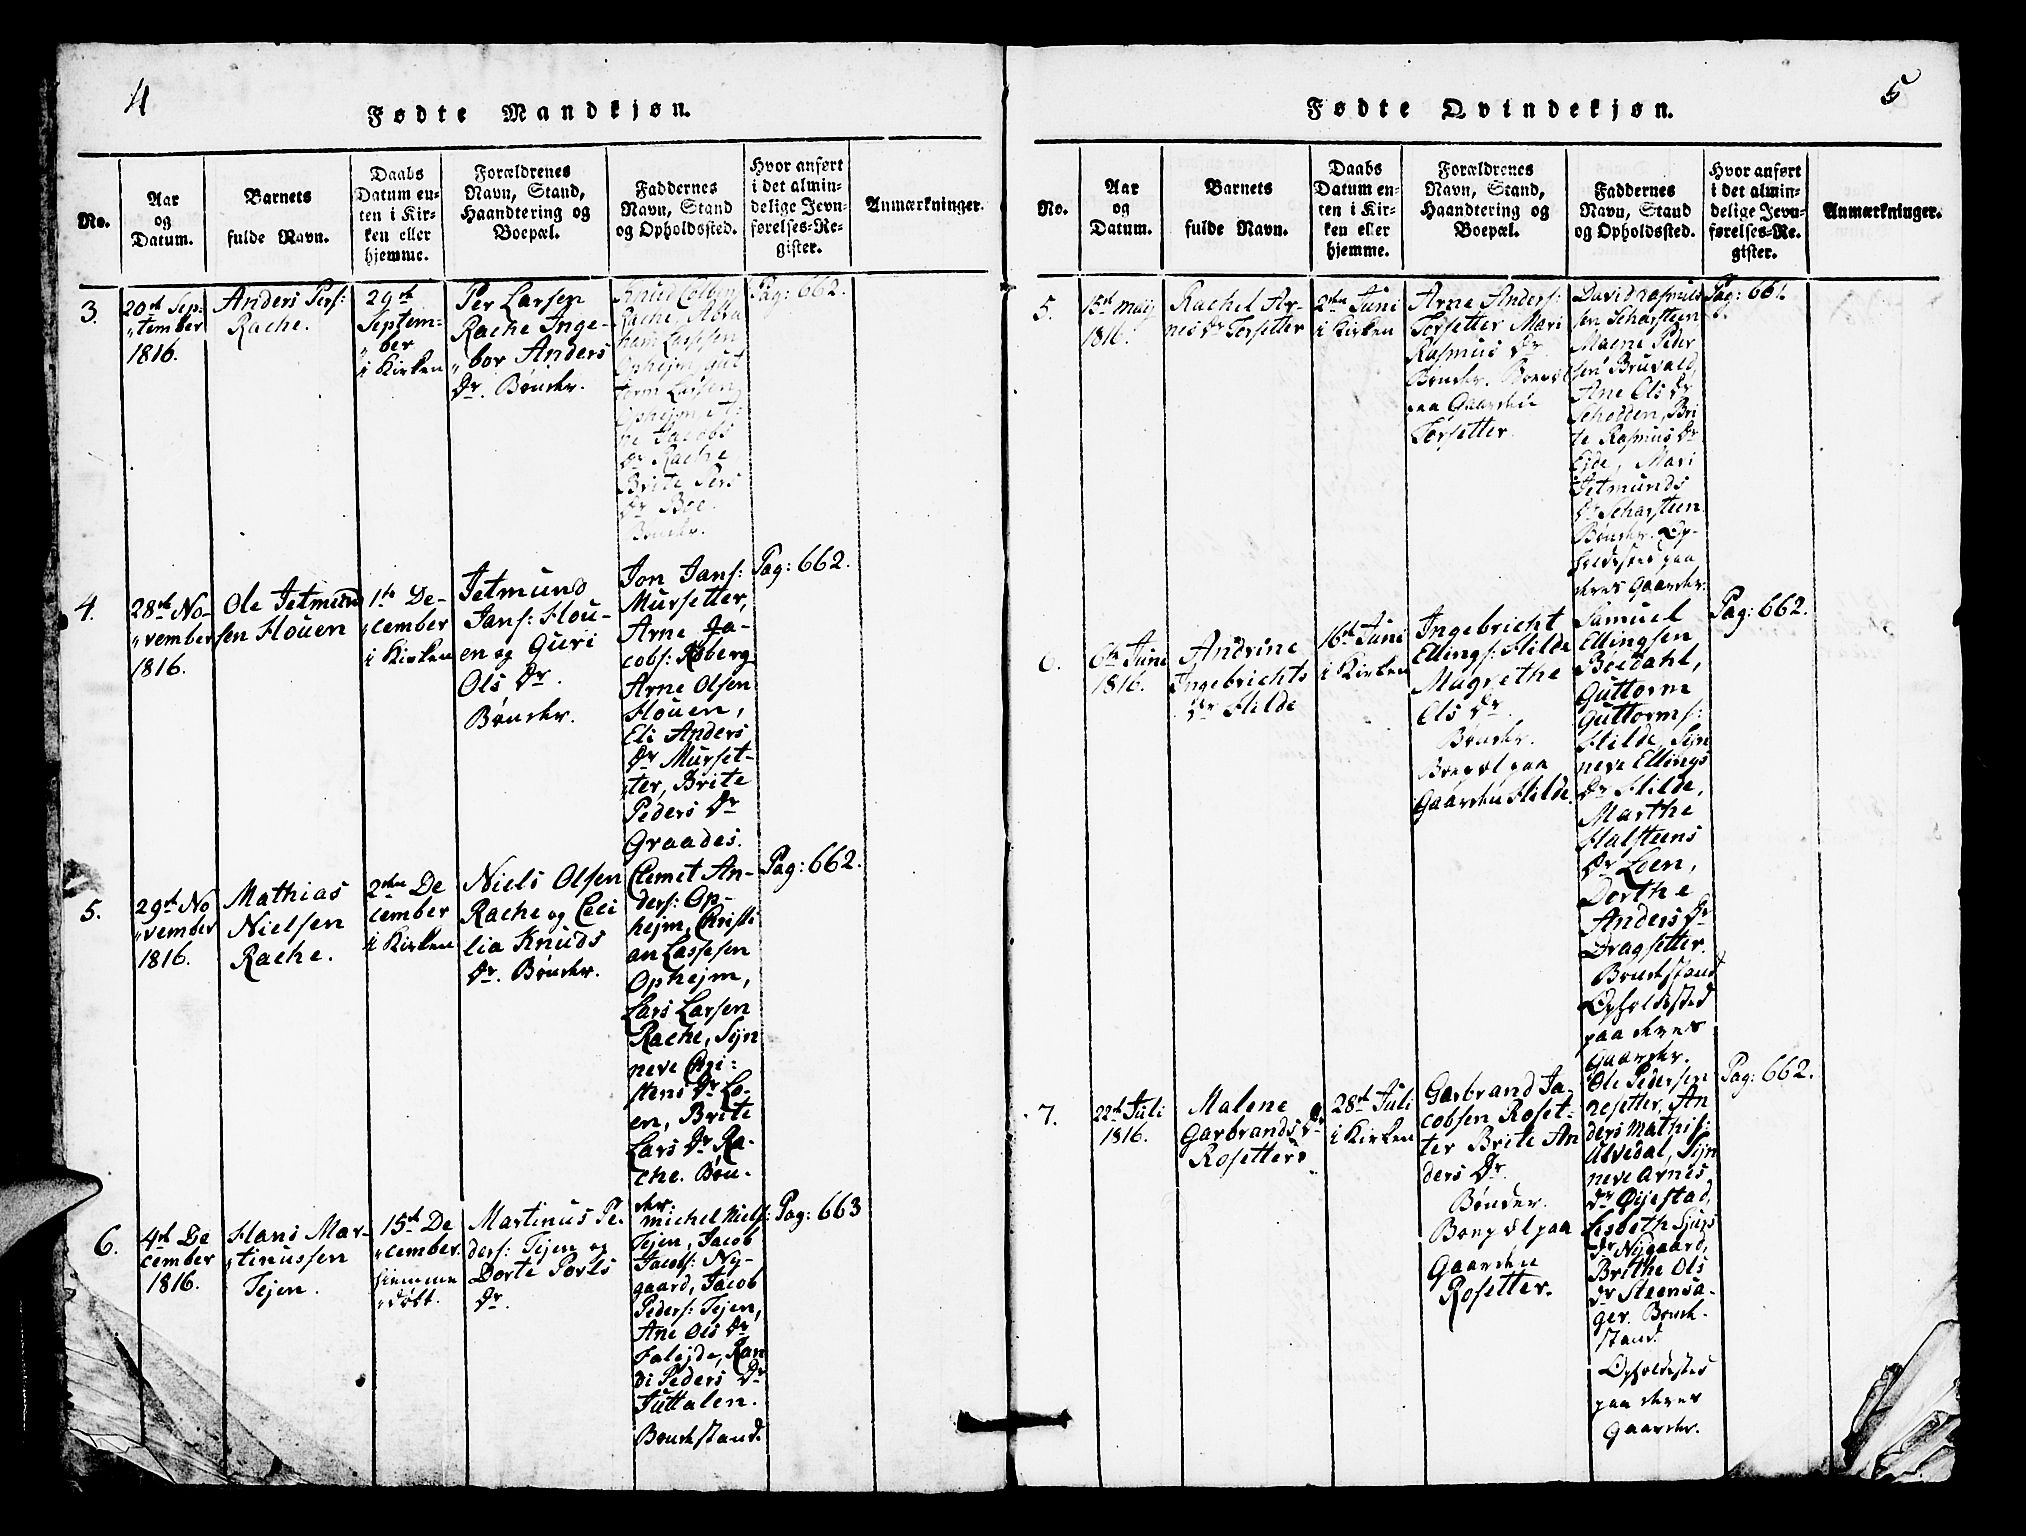 4
Fødte Mandkjøn.
No.
Aar
og
Datum.
Barnets
fulde Navn.
Daabs
Datum en-
ten i Kir-
ken eller
hjemme.
Forældrenes
Navn, Stand,
Haandtering og
Boepæl.
Faddernes
Navn, Stand
og Opholdssted.
Hvor anført
i det almin-
delige Jevn-
førelses-Re-
gister.
Anmærkninger.
3.
20de Sep:
"tember
1816.
Anders Pers:
Rache.
29de
Septem-
" ber
i Kirken
Per Larsen
Rache Inge-
"bor Anders
Dr. Bønder.
Knud Colben
Rache, Abra
ham Lassesen
Ophejm, Gut
torm Larsen
Ophejm
Jacobs
Dr Rache
Brite Pers
Dr Boe.
Bønder.
Pag: 662.
4.
28de No-
"vember
1816.
Ole Jetmund
sen Houen
1ste De-
"cember
i Kirken
Jetmund
Jans: Hou-
en og Guri
Ols Dr.
Bønder.
Jon Jans:
Mursetter,
Arne Ja-
cobs: Roberg
Arne Olsen
Houen,
Eli Anders
Dr Murset-
"ter, Brite
Peders Dr
Graades.
Pag: 662.
5.
29de No
"vember
1816.
Mathias
Nielsen
Rache.
2den De
cember
i Kirken
Niels Olsen
Rache og Ceci
lia Knuds
Dr. Bønder.
Clemet An-
ders: Op-
hejm, Christi
an Lassesen
Ophejm,
Lars Larsen
Rache, Sÿn
neve Chri:
stens Dr Lo-
en, Brite
Lars Dr Ra-
che. Bøn-
der.
Pag: 662.
6.
4de De
cember
1816.
Hans Mar-
"tinussen
Tejen.
15de De
"cember
hiemme
"døbt.
Martinus Pe.
ders: Tejen og
Dorte Povls
Dr.
Michel Niels:
Tejen, Jacob
Jacobs: Ny-
gaard, Jacob
Peders: Tejen,
Ane Ols Dr
Falejde, Ran
di Peders Dr
Tuttalen.
Bondestand.
Pag: 663
5
Fødte Qvindekjøn.
No.
Aar
og
Datum.
Barnets
fulde Navn.
Daabs
Datum en-
ten i Kir-
ken eller
hjemme.
Forældrenes
Navn, Stand,
Haandtering og
Boepæl.
Faddernes
Navn, Stand
og Opholdssted.
Hvor anført
i det almin-
delige Jevn-
førelses-Re-
gister.
Anmærkninger.
5.
15de Maij
1816.
Rachel Ar-
nes Dr Torsetter
2den Juni
i Kirken
Arne Anders:
Torsetter Mari
Rasmus Dr.
Bønder. Boepæl
paa Gaarden
Torsetter.
David Rasmus
sen Scharsteen
Peder
sen Bruvald,
Ane Ols Dr
Scholden, Bri
te Rasmus Dr
Eide, Mari
Jetmunds
Dr Scharsteen
Bønder. Op-
holdested paa
deres Gaarder.
Pag: 661.
6.
6te Juni
1816.
Andrine
Ingebrichts
Dr Hilde
16de Juni
i Kirken
Ingebricht
Ellings: Hilde
Magrethe
Ols Dr.
Bønder.
Boepæl paa
Gaarden Hilde.
Samuel
Ellingsen
Bøedahl,
Guttorm
Guttorms:
Hilde, Sÿn
neve Ellings
Dr Hilde,
Marthe
Halsteens
Dr Leen,
Dorthe
Anders Dr
Dragsetter.
Bondestand
Opholdested
paa deres
Gaarder.
Pag: 662.
7.
22de Juli
1816.
Malene
Garbrands Dr
Rosetter
28de Juli
i Kirken
Garbrand Ja-
cobsen Roset-
ter Brite An
ders Dr.
Bønder.
Boepæl paa
Gaarden
Rosetter.
Ole Pedersen
Resetter, An
ders Mathis:
Ulvedal, Sÿn
neve Arnes
Dr Øijestad,
Lisbeth Sjurs
Dr Nygaard,
Brithe Ols
Dr Steensa-
ger. Bonde-
stand.
Opholdested
paa deres
Gaarder.
Pag: 662.